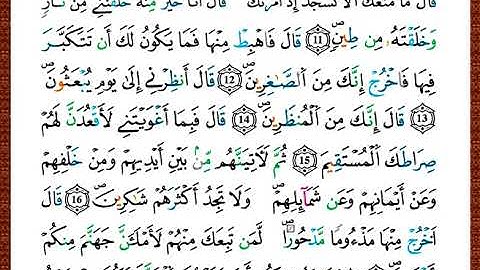 قَالَ مَا مَنَعَكَ أَلَّا تَسْجُدَ إِذَ اَمَرْتُكَ قَالَ أَنَا خَيْرٌ مِّنْهُ خَلَقْتَنِے مِن نّ۪ارٖ
وَخَلَقْتَهُۥ مِن طِينٖۖ 11 قَالَ فَاهْبِطْ مِنْهَا فَمَا يَكُونُ لَكَ أَن تَتَكَبَّرَ
فِيهَا فَاخْرُجِ اِنَّكَ مِنَ اَلصَّٰغِرِينَۖ 12 قَالَ أَنظِرْنِےٓ إِلَىٰ يَوْمِ يُبْعَثُونَۖ
13 قَالَ إِنَّكَ مِنَ اَلْمُنظَرِينَۖ 14 قَالَ فَبِمَآ أَغْوَيْتَنِے لَأَقْعُدَنَّ لَهُمْ
صِرَٰطَكَ اَلْمُسْتَقِيمَ 15 ثُمَّ لَأٓتِيَنَّهُم مِّنۢ بَيْنِ أَيْدِيهِمْ وَمِنْ خَلْفِهِمْ
وَعَنَ اَيْمَٰنِهِمْ وَعَن شَمَآئِلِهِمْۖ وَلَا تَجِدُ أَكْثَرَهُمْ شَٰكِرِينَۖ 16 قَالَ
اَخْرُجْ مِنْهَا مَذْءُوماٗ مَّدْحُوراٗۖ لَّمَن تَبِعَكَ مِنْهُمْ لَأَمْلَأَنَّ جَهَنَّمَ مِنكُمُۥٓ